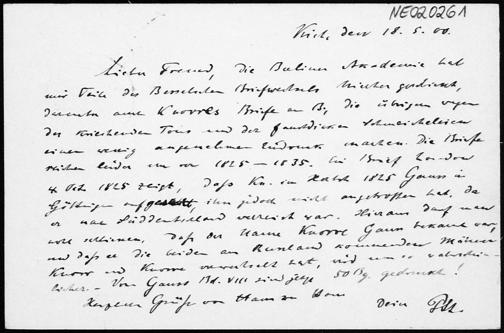 NE020261
Kiel, den 18. 5. 00.
Lieber Freund, die Berliner Akademie hat
mir Teile des Besselschen Briefwechsels hierher geschickt,
darunter auch Knorres Briefe an B; die übrigen wegen
des kriechenden Tons und der faustdicken Schmeicheleien
einen wenig angenehmen Eindruck machen. Die Briefe
reichen leider nur von 1825 – 1835. Ein Brief
4 Oct 1825 zeigt, daß Kn. im 1825 Gauss in
Göttingen aufgesucht, ihn jedoch nicht angetroffen hat, da
er nach Süddeutschland verreist war. Hieraus darf man
wohl schliessen, daß der Name Knorre Gauss bekannt war,
und daß er die beiden aus Russland kommenden
Knorr und Knorre verwechselt hat, wird um so wahrschein-
licher. – Von Gauss Bd. VIII sind jetzt 50 Bg. gedruckt!
Herzliche Grüße von Haus zu Haus
Dein